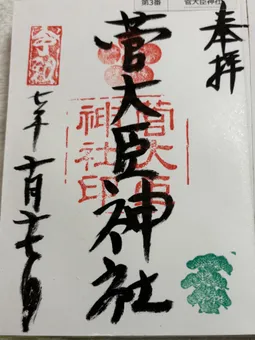 第3番 菅大臣神社
奉拝
菅大臣神社
菅大臣
神社印
令和
七年